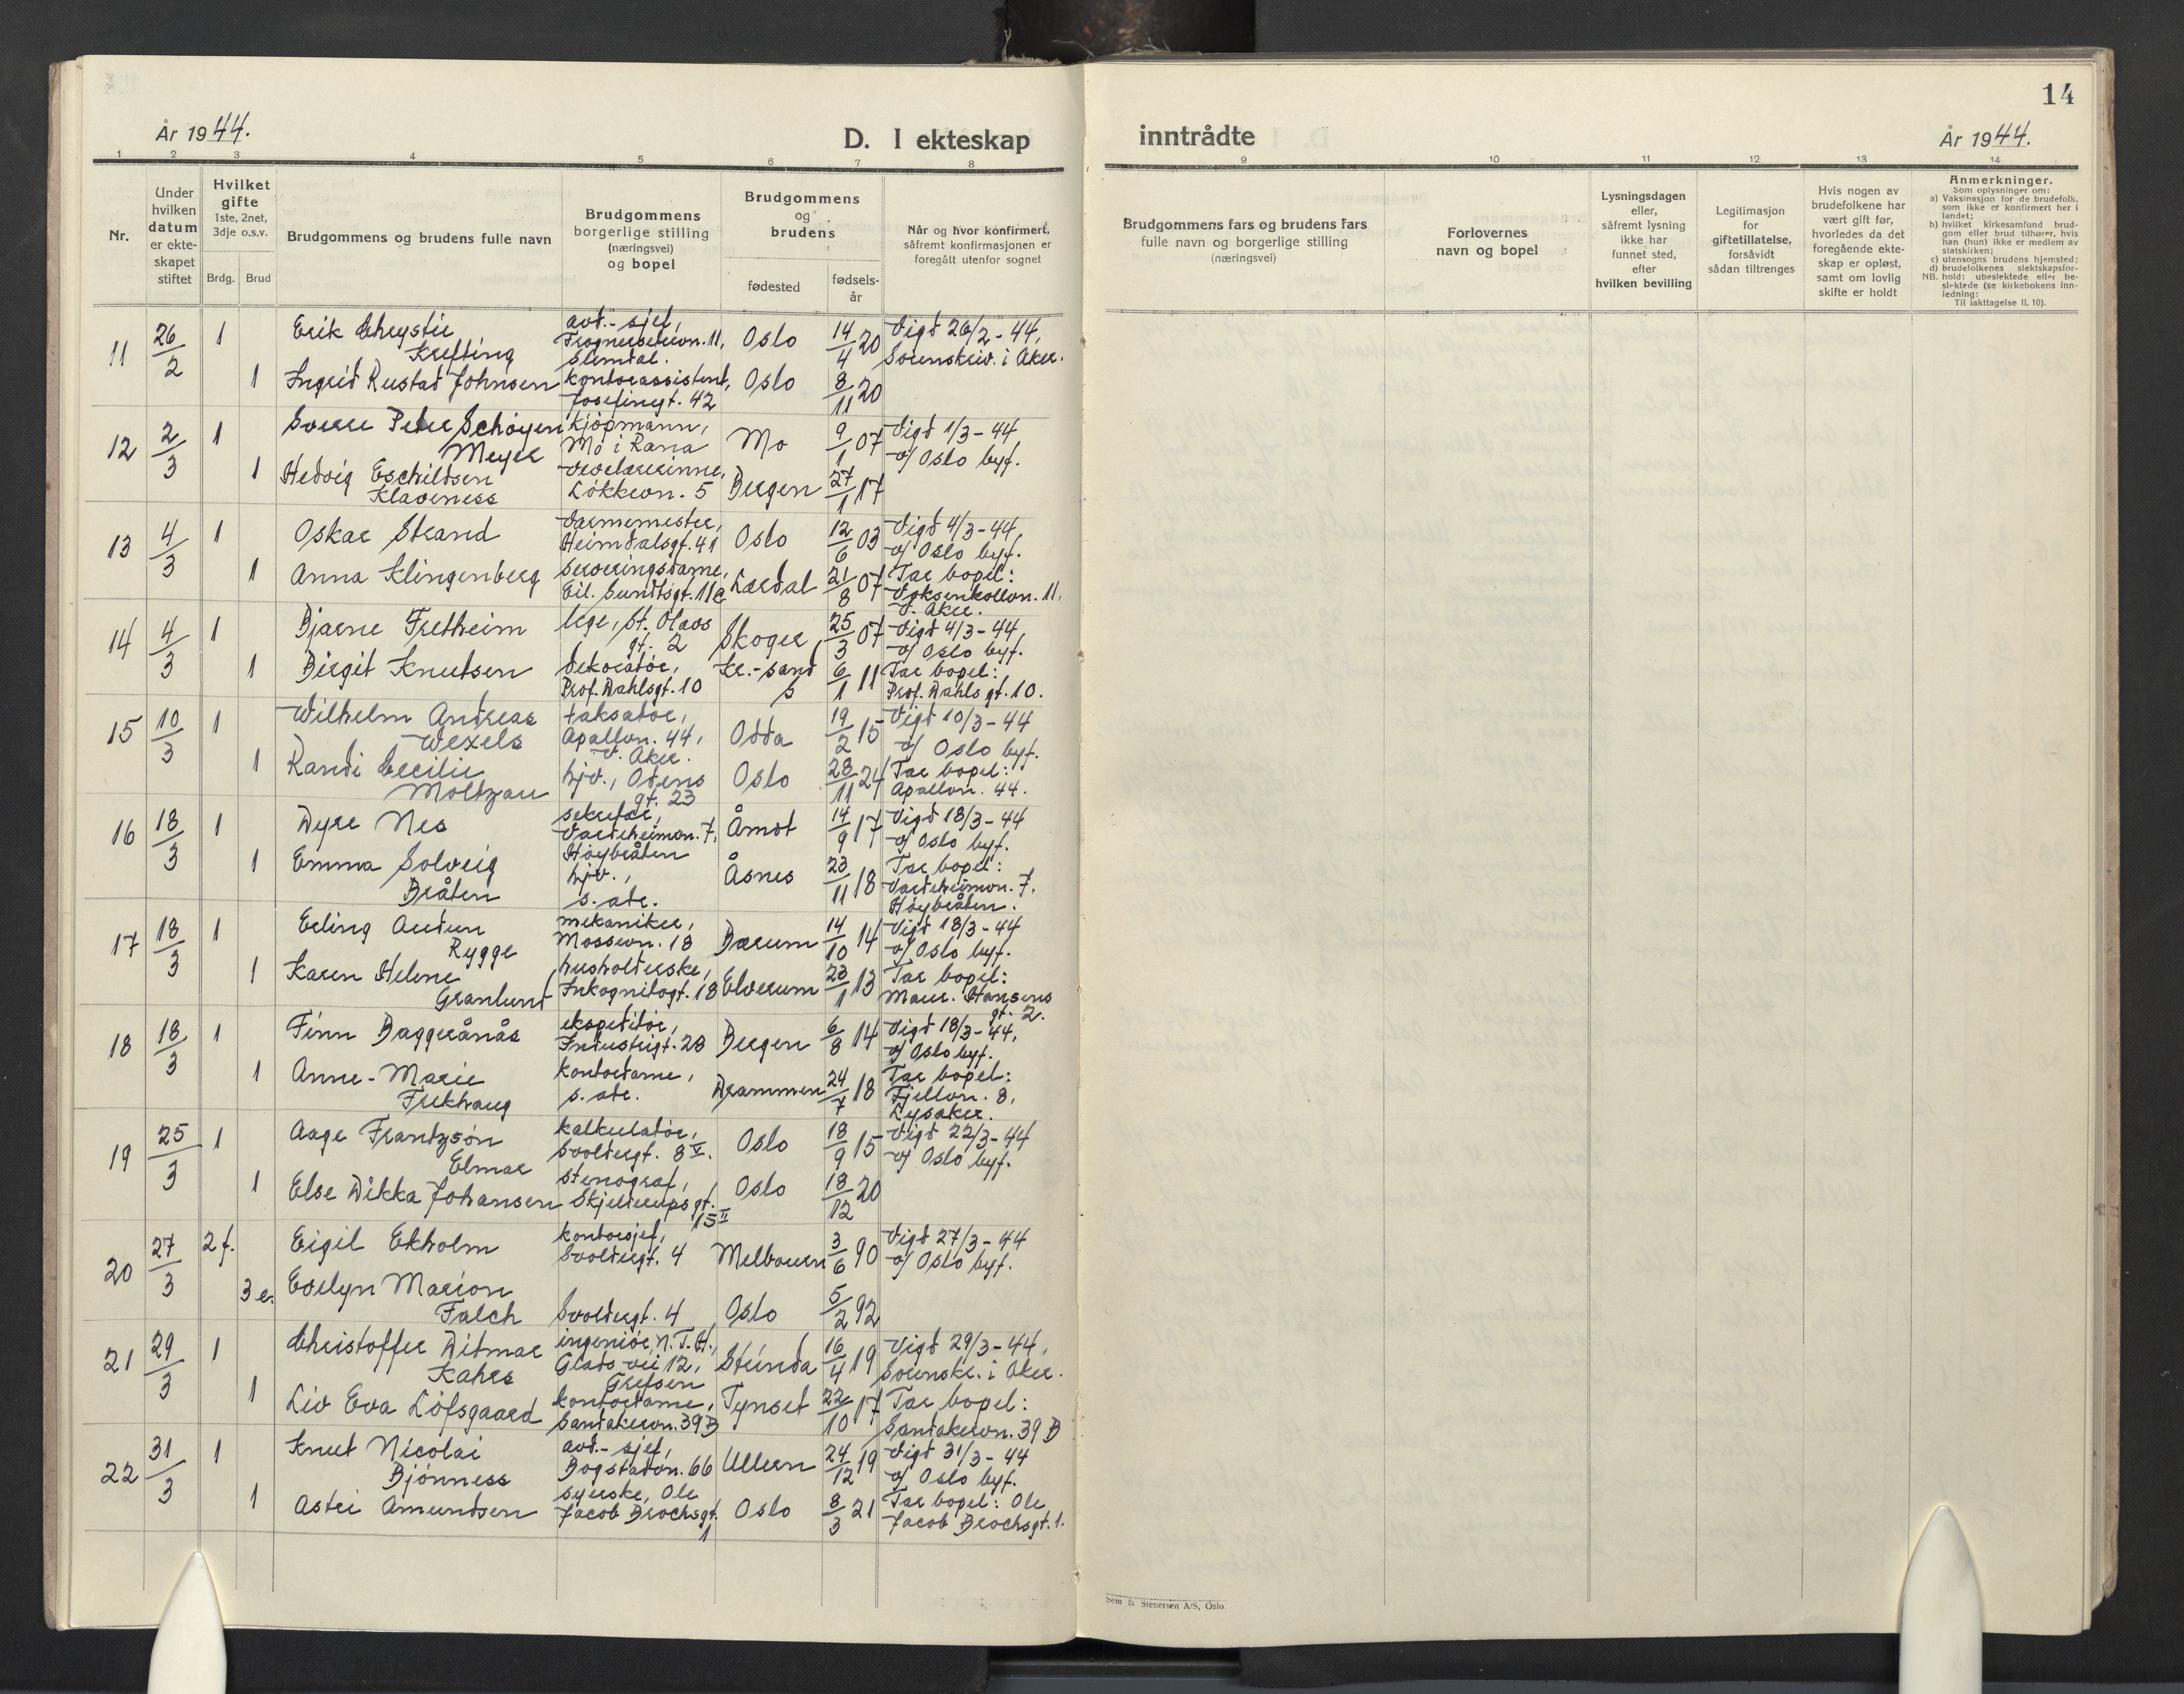 År 1944.
D. I ekteskap
inntrådte
14
År 1944.
1 2 3 4 5 6 7 8 9 10 11 12 13 14
Nr.
Under
hvilken
datum
er ekte-
skapet
stiftet
Hvilket
gifte
1ste, 2net,
3dje o.s.v.
Brdg. Brud
Brudgommens og brudens fulle navn
Brudgommens
borgerlige stilling
(næringsvei)
og bopel
Brudgommens
og
brudens
fødested
fødsels-
år
Når og hvor konfirmert,
såfremt konfirmasjonen er
foregått utenfor sognet
Brudgommens fars og brudens fars
fulle navn og borgerlige stilling
(næringsvei)
Forlovernes
navn og bopel
Lysningsdagen
eller,
såfremt lysning
ikke har
funnet sted,
efter
hvilken bevilling
Legitimasjon
for
giftetillatelse,
forsåvidt
sådan tiltrenges
Hvis nogen av
brudefolkene har
vært gift før,
hvorledes da det
foregående ekte-
skap er opløst,
samt om lovlig
skifte er holdt
Anmerkninger.
Som oplysninger om:
a) Vaksinasjon for de brudefolk,
som ikke er konfirmert her i
landet;
b) hvilket kirkesamfund brud-
gom eller brud tilhører, hvis
han (hun) ikke er medlem av
statskirken;
c) utensogns brudens hjemsted;
d) brudefolkenes slektskapsfor-
NB. hold: ubeslektede eller be-
slektede (se kirkebokens inn-
ledning:
Til iakttagelse II. 10).
11 26/2 1 Erik Chrystie
Krefting
avd.-sjef,
Frognersetervn. 11,
Slemdal.
Oslo 14/4 20
Vigd 26/2-44,
Sorenskriv. i Aker.
1 Ingrid Rustad Johnsen
kontorassistent,
Josefinegt. 42
Oslo 8/11 20
12 2/3 1 Sverre Peter Schøyen
Meyer
kjøpmann,
Mo i Rana
Mo 9/1 07
Vigd 1/3-44
v/ Oslo byf.
1 Hedvig Eschildsen
Klaveness
vevelærerinne,
Løkkevn. 5
Bergen 27/1 17
13 4/3 1 Oskar Strand
varmemester,
Heimdalsgt. 41
Oslo 12/6 03
Vigd 4/3-44,
v/ Oslo byf.
1 Anna Klingenberg
serveringsdame,
Eil. Sundtsgt. 11c
Lærdal 21/8 07
Tar bopel:
Voksenkollvn. 11,
V. Aker.
14 4/3 1 Bjarne Fretheim
lege, St. Olavs
gt. 2
Skoger 25/3 07
Vigd 4/3-44,
v/ Oslo byf.
1 Birgit Knutsen
dekoratør,
Prof. Dahlsgt. 10
Kr.-sand
S
6/1 11
Tar bopel:
Prof. Dahls gt. 10.
15 10/3 1 Wilhelm Andreas
Wexels
taksator,
Apallvn. 44,
V. Aker.
Odda 19/2 15
Vigd 10/3-44
v/ Oslo byf.
1 Randi Cecilie
Moltzau
hjv., Odins
gt. 23
Oslo 28/11 24
Tar bopel:
Apallvn. 44.
16 18/3 1 Dyre Nes
sekretær,
Vardeheimvn. 7,
Høybråten
Åmot 14/9 17
Vigd 18/3-44
v/ Oslo byf.
1 Emma Solveig
Bråten
hjv.,
s. adr.
Åsnes 23/11 18
Tar bopel:
Vardeheimvn. 7,
Høybråten.
17 18/3 1 Erling Audun
Rygge
mekaniker,
Mossevn. 18
Bærum 14/10 14
Vigd 18/3-44
v/ Oslo byf.
1 Karen Helene
Granlund
husholderske,
Inkognitogt. 18
Elverum 23/1 13
Tar bopel:
Maur. Hansens
gt. 2.
18 18/3 1 Finn Baggerånås
ekspeditør,
Industrigt. 28
Bergen 6/8 14
Vigd 18/3-44,
v/ Oslo byf.
1 Anne-Marie
Frekhaug
kontordame,
s. adr.
Drammen 24/7 18
Tar bopel:
Fjellvn. 8,
Lysaker.
19 25/3 1 Aage Frantzsøn
Elmar
kalkulatør,
Svoldergt. 8 V.
Oslo 18/9 15
Vigd 22/3-44
v/ Oslo byf.
1 Else Dikka Johansen
stenograf,
Skjelderupsgt.
15 II
Oslo 18/12 20
20 27/3 2 f. Eigil Ekholm
kontorsjef,
Svoldergt. 4
Melbourn 3/6 90
Vigd 27/3-44
v/ Oslo byf.
3 e. Evelyn Marion
Falch
Svoldergt. 4
Oslo 5/2 92
21 29/3 1 Christoffer Ditmar
Kahrs
ingeniør, N.T.H.,
Glads vei 12,
Grefsen
Strinda 16/4 19
Vigd 29/3-44,
Sorenskr. i Aker.
1 Liv Eva Löfsgaard
kontordame,
Sandakervn. 39 B
Tynset 22/10 17
Tar bopel:
Sandakervn. 39 B
22 31/3 1 Knut Nicolai
Bjønness
avd.-sjef,
Bogstadvn. 66
Ullern 24/12 19
Vigd 31/3-44
v/ Oslo byf.
1 Astri Amundsen
syerske, Ole
Jacob Brochsgt.
1
Oslo 8/3 21
Tar bopel: Ole
Jacob Brochsgt. 1.
Sem & Stenersen A/S, Oslo.